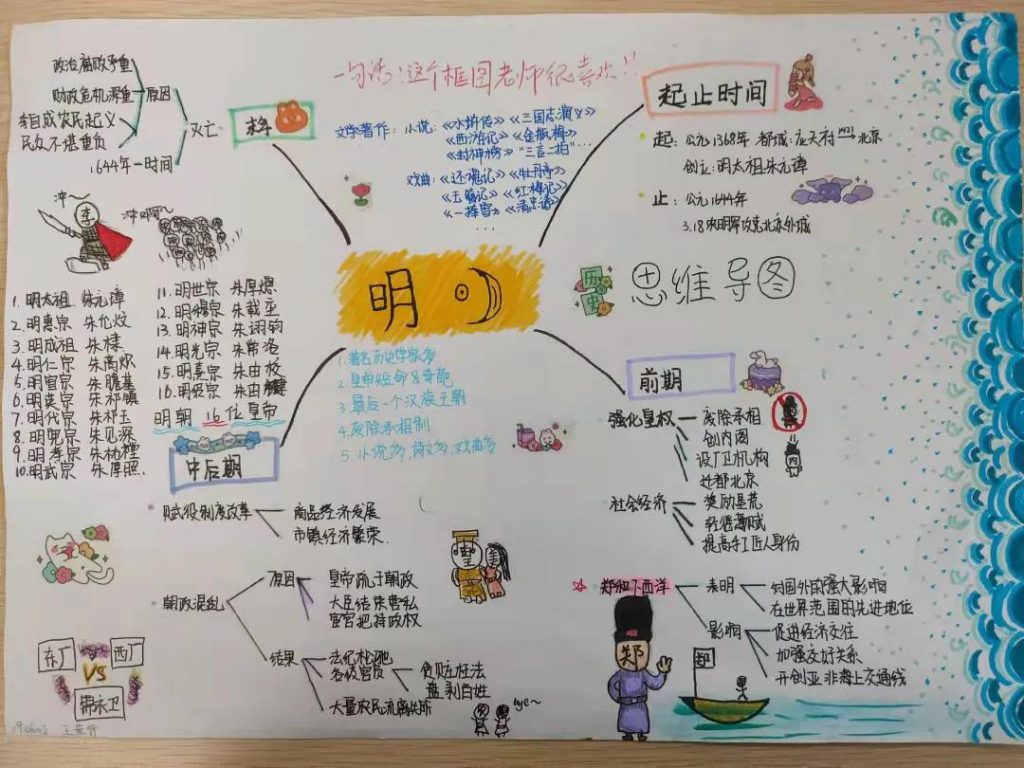 一句话:这个框图老师很喜欢!!
起止时间
起:公元1368年 都城:应天府 1421 北京
创立:明太祖朱元璋
止:公元1644年
3.18农明军攻克北京外城
思维导图
明
文学著作:小说:《水浒传》《三国志演义》
《西游记》《金瓶梅》
《封神榜》"三言二拍"...
戏曲:《还魂记》《牡丹亭》
《玉簪记》《红梅记》
《一捧雪》
...
末年
灭亡
原因
政治腐败严重
财政危机深重
李自成农民起义
民众不堪重负
1644年一时间
冲~
冲啊~
1.明太祖 朱元璋
2.明惠宗 朱允炆
3.明成祖 朱棣
4.明仁宗 朱高炽
5.明宣宗 朱瞻基
6.明英宗 朱祁镇
7.明代宗 朱祁玉
8.明宪宗 朱见深
9.明孝宗 朱祐樘
10.明武宗 朱厚照
11.明世宗 朱厚熜
12.明穆宗 朱载垕
13.明神宗 朱诩钧
14.明光宗 朱常洛
15.明熹宗 朱由校
16.明毅宗 朱由检
明朝16位皇帝
1.著名历史学家多
2.皇帝短命&奇葩
3.最后一个汉族王朝
4.废除丞相制
5.小说多、诗文多、戏曲多
前期
强化皇权
废除丞相
创内阁
设厂卫机构
迁都北京
社会经济
奖励垦荒
轻徭薄赋
提高手工匠人身份
内
郑和下西洋
表明
对国外的强大影响
在世界范围的先进地位
影响
促进经济交往
加强友好关系
开创亚非海上交通线
郑
郑
中后期
赋役制度改革
商品经济发展
市镇经济繁荣
朝政混乱
原因
皇帝疏于朝政
大臣结朱营私
宦官把持政权
结果
法纪松弛
各级官员
贪赃枉法
盘剥百姓
大量农民流离失所
bye~
东厂
西厂
VS
锦衣卫